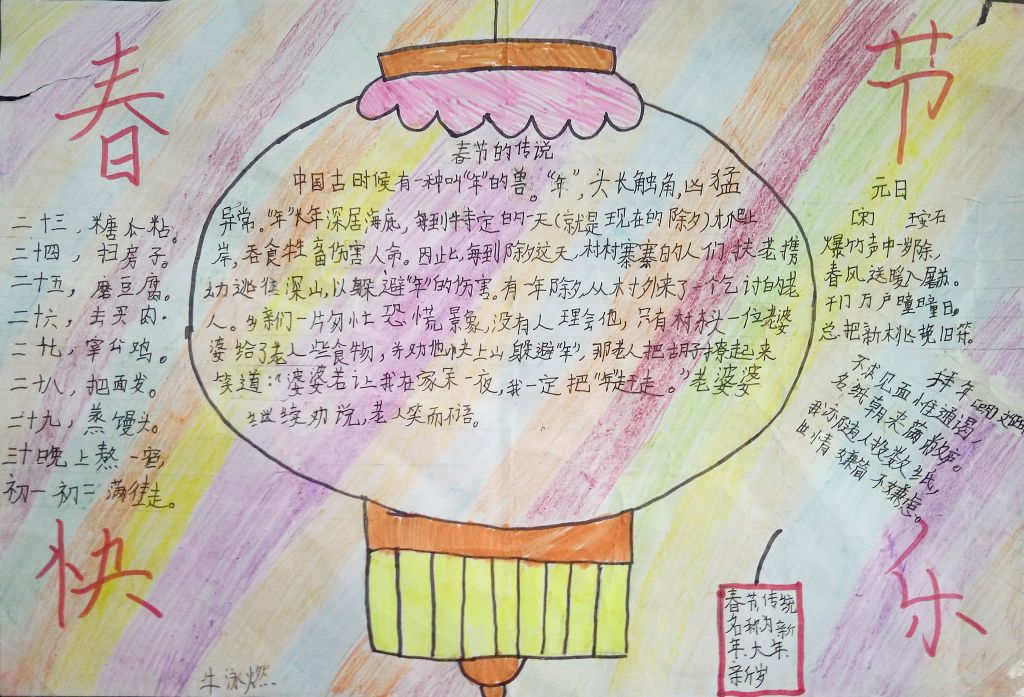 春
节
春节的传说
中国古时候有一种叫“年”的兽。“年”，头长触角，凶猛
异常。“年”长年深居海底，每到特定的一天(就是现在的除夕)才爬上
岸，吞食牲畜伤害人命。因此，每到除夕这天，村村寨寨的人们扶老携
幼逃往深山，以躲避“年”的伤害。有一年除夕，从村外来了一个乞讨的老
人。乡亲们一片匆忙恐慌景象，没有人理会他，只有村头一位老婆
婆给了老人些食物，并劝他快上山躲避“年”，那老人把胡子撩起来
笑道：“婆婆若让我在家呆一夜，我一定把“年”赶走。”老婆婆
继续劝说，老人笑而不语。
二十三，糖瓜粘。
二十四，扫房子。
二十五，磨豆腐。
二十六，去买肉。
二十七，宰公鸡。
二十八，把面发。
二十九，蒸馒头。
三十晚上熬一宿，
初一初二满街走。
元日
[宋] 王安石
爆竹声中岁除，
春风送暖入屠苏。
千门万户曈曈日。
总把新桃换旧符。
拜年 [明]
不求见面惟通谒，
名纸朝来满敝庐。
我亦随人投数纸，
世情嫌简不嫌虚。
快
乐
春节，传统
名称为新
年、大年、
新岁
牛泳燃